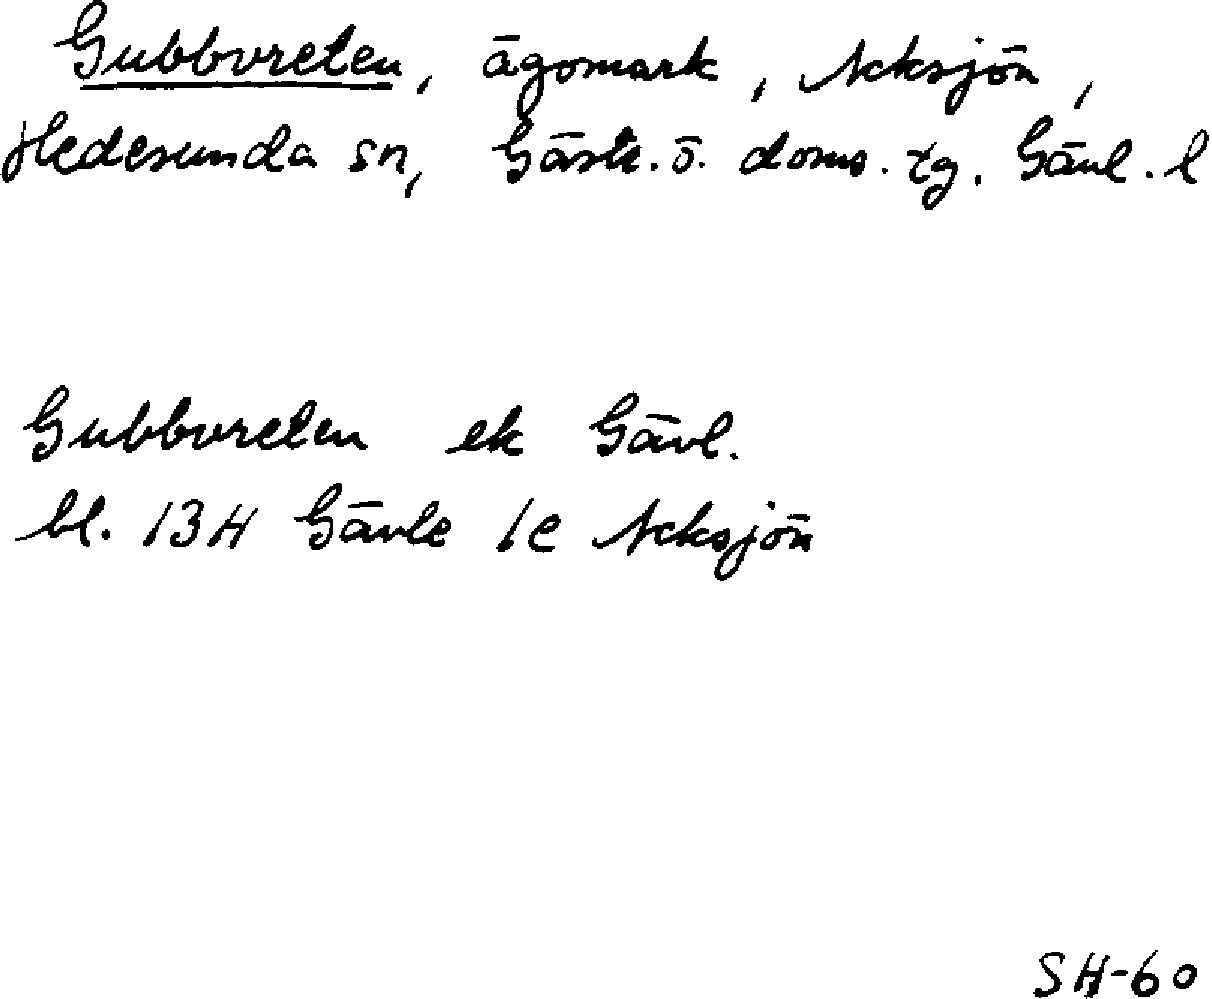 Gubbvreten, ägomark, Acksjön,
Hedesunda sn, Gästr. ö. doms. tg. Gävl. l
Gubbvreten ek Gävl.
bl. 13H Gävle 1e Acksjön
SH-60